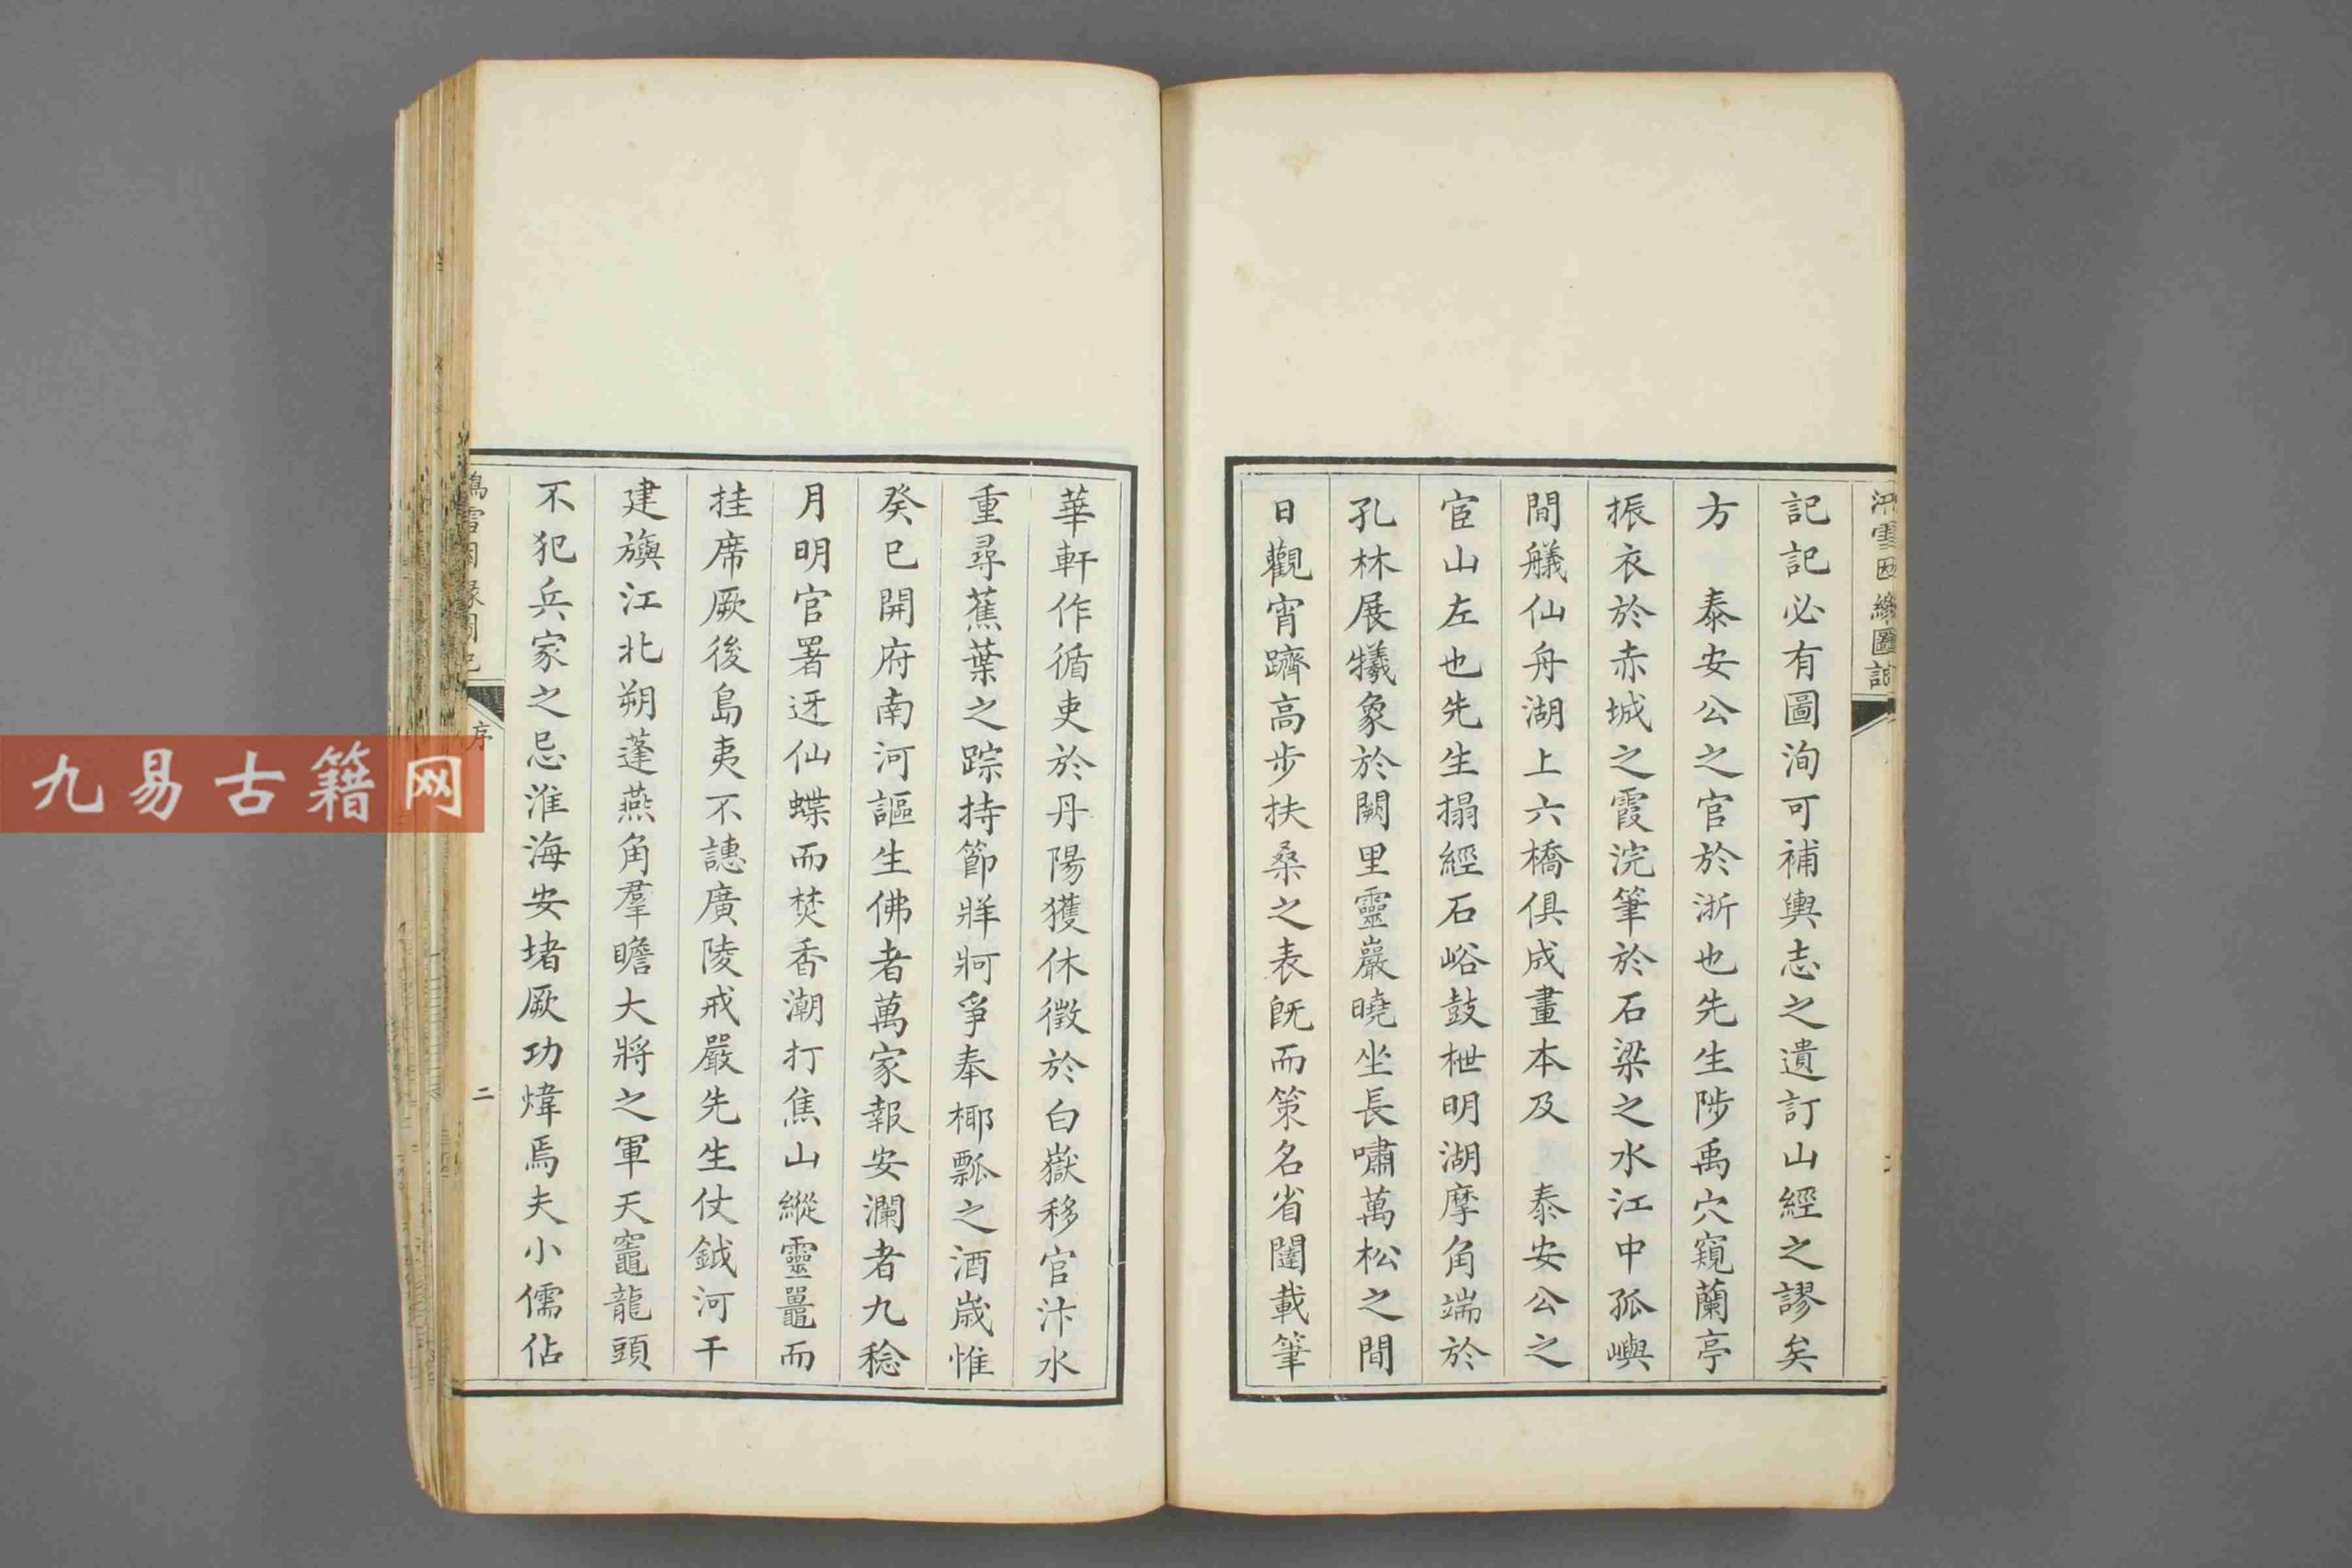 記記必有圖洵可補輿志之遺訂山經之謬矣
方　泰安公之官於浙也先生陟禹穴窺蘭亭
振衣於赤城之霞浣筆於石梁之水江中孤嶼
間艤仙舟湖上六橋俱成畫本及　泰安公之
宦山左也先生搨經石峪鼓枻明湖摩角端於
孔林展犧象於闕里靈巖曉坐長嘯萬松之間
日觀宵躋高步扶桑之表既而策名省闥載筆
華軒作循吏於丹陽獲休徵於白嶽移官汴水
重尋蕉葉之踪持節牂牁爭奉椰瓢之酒歲惟
癸巳開府南河謳生佛者萬家報安瀾者九稔
月明官署迓仙蝶而焚香潮打焦山縱靈鼉而
挂席厥後島夷不譓廣陵戒嚴先生仗鉞河干
建旟江北朔蓬燕角羣瞻大將之軍天竈龍頭
不犯兵家之忌淮海安堵厥功煒焉夫小儒佔
鴻雪因緣圖記
序
二
九易古籍网